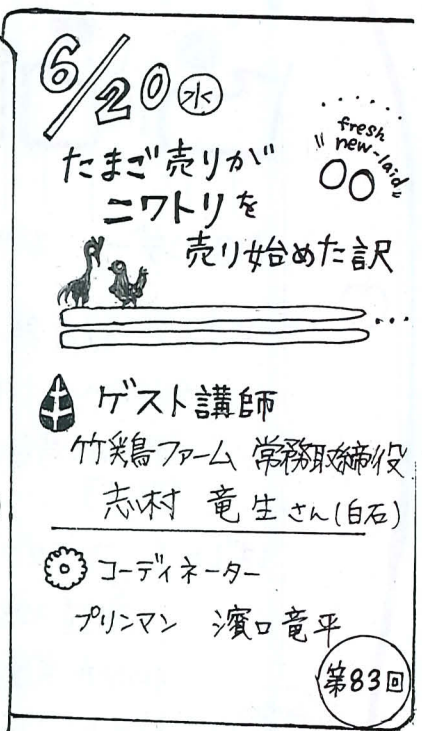 6/20㊌
fresh
"new-laid"
たまご売りが
ニワトリを
売り始めた訳
ゲスト講師
竹鶏ファーム 常務取締役
志村 竜生さん(白石)
コーディネーター
プリンマン 濱口竜平
第83回